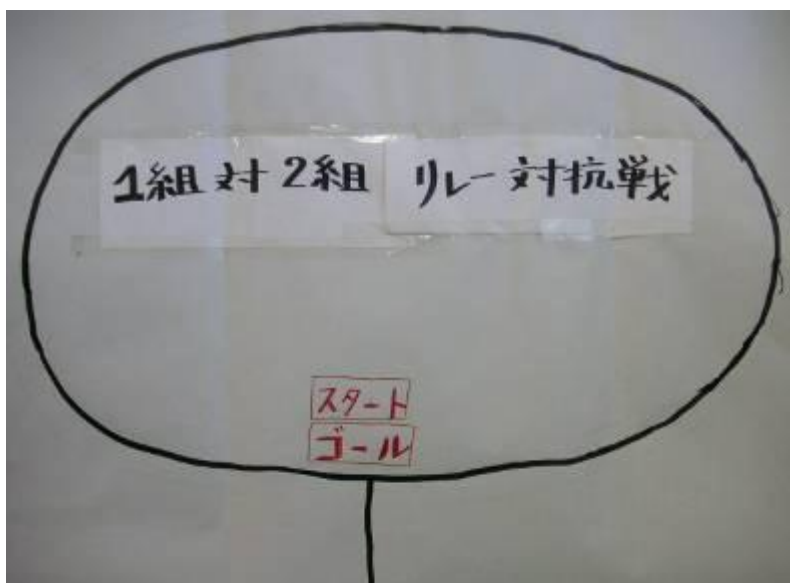 1組対2組 リレー対抗戦
スタート
ゴール